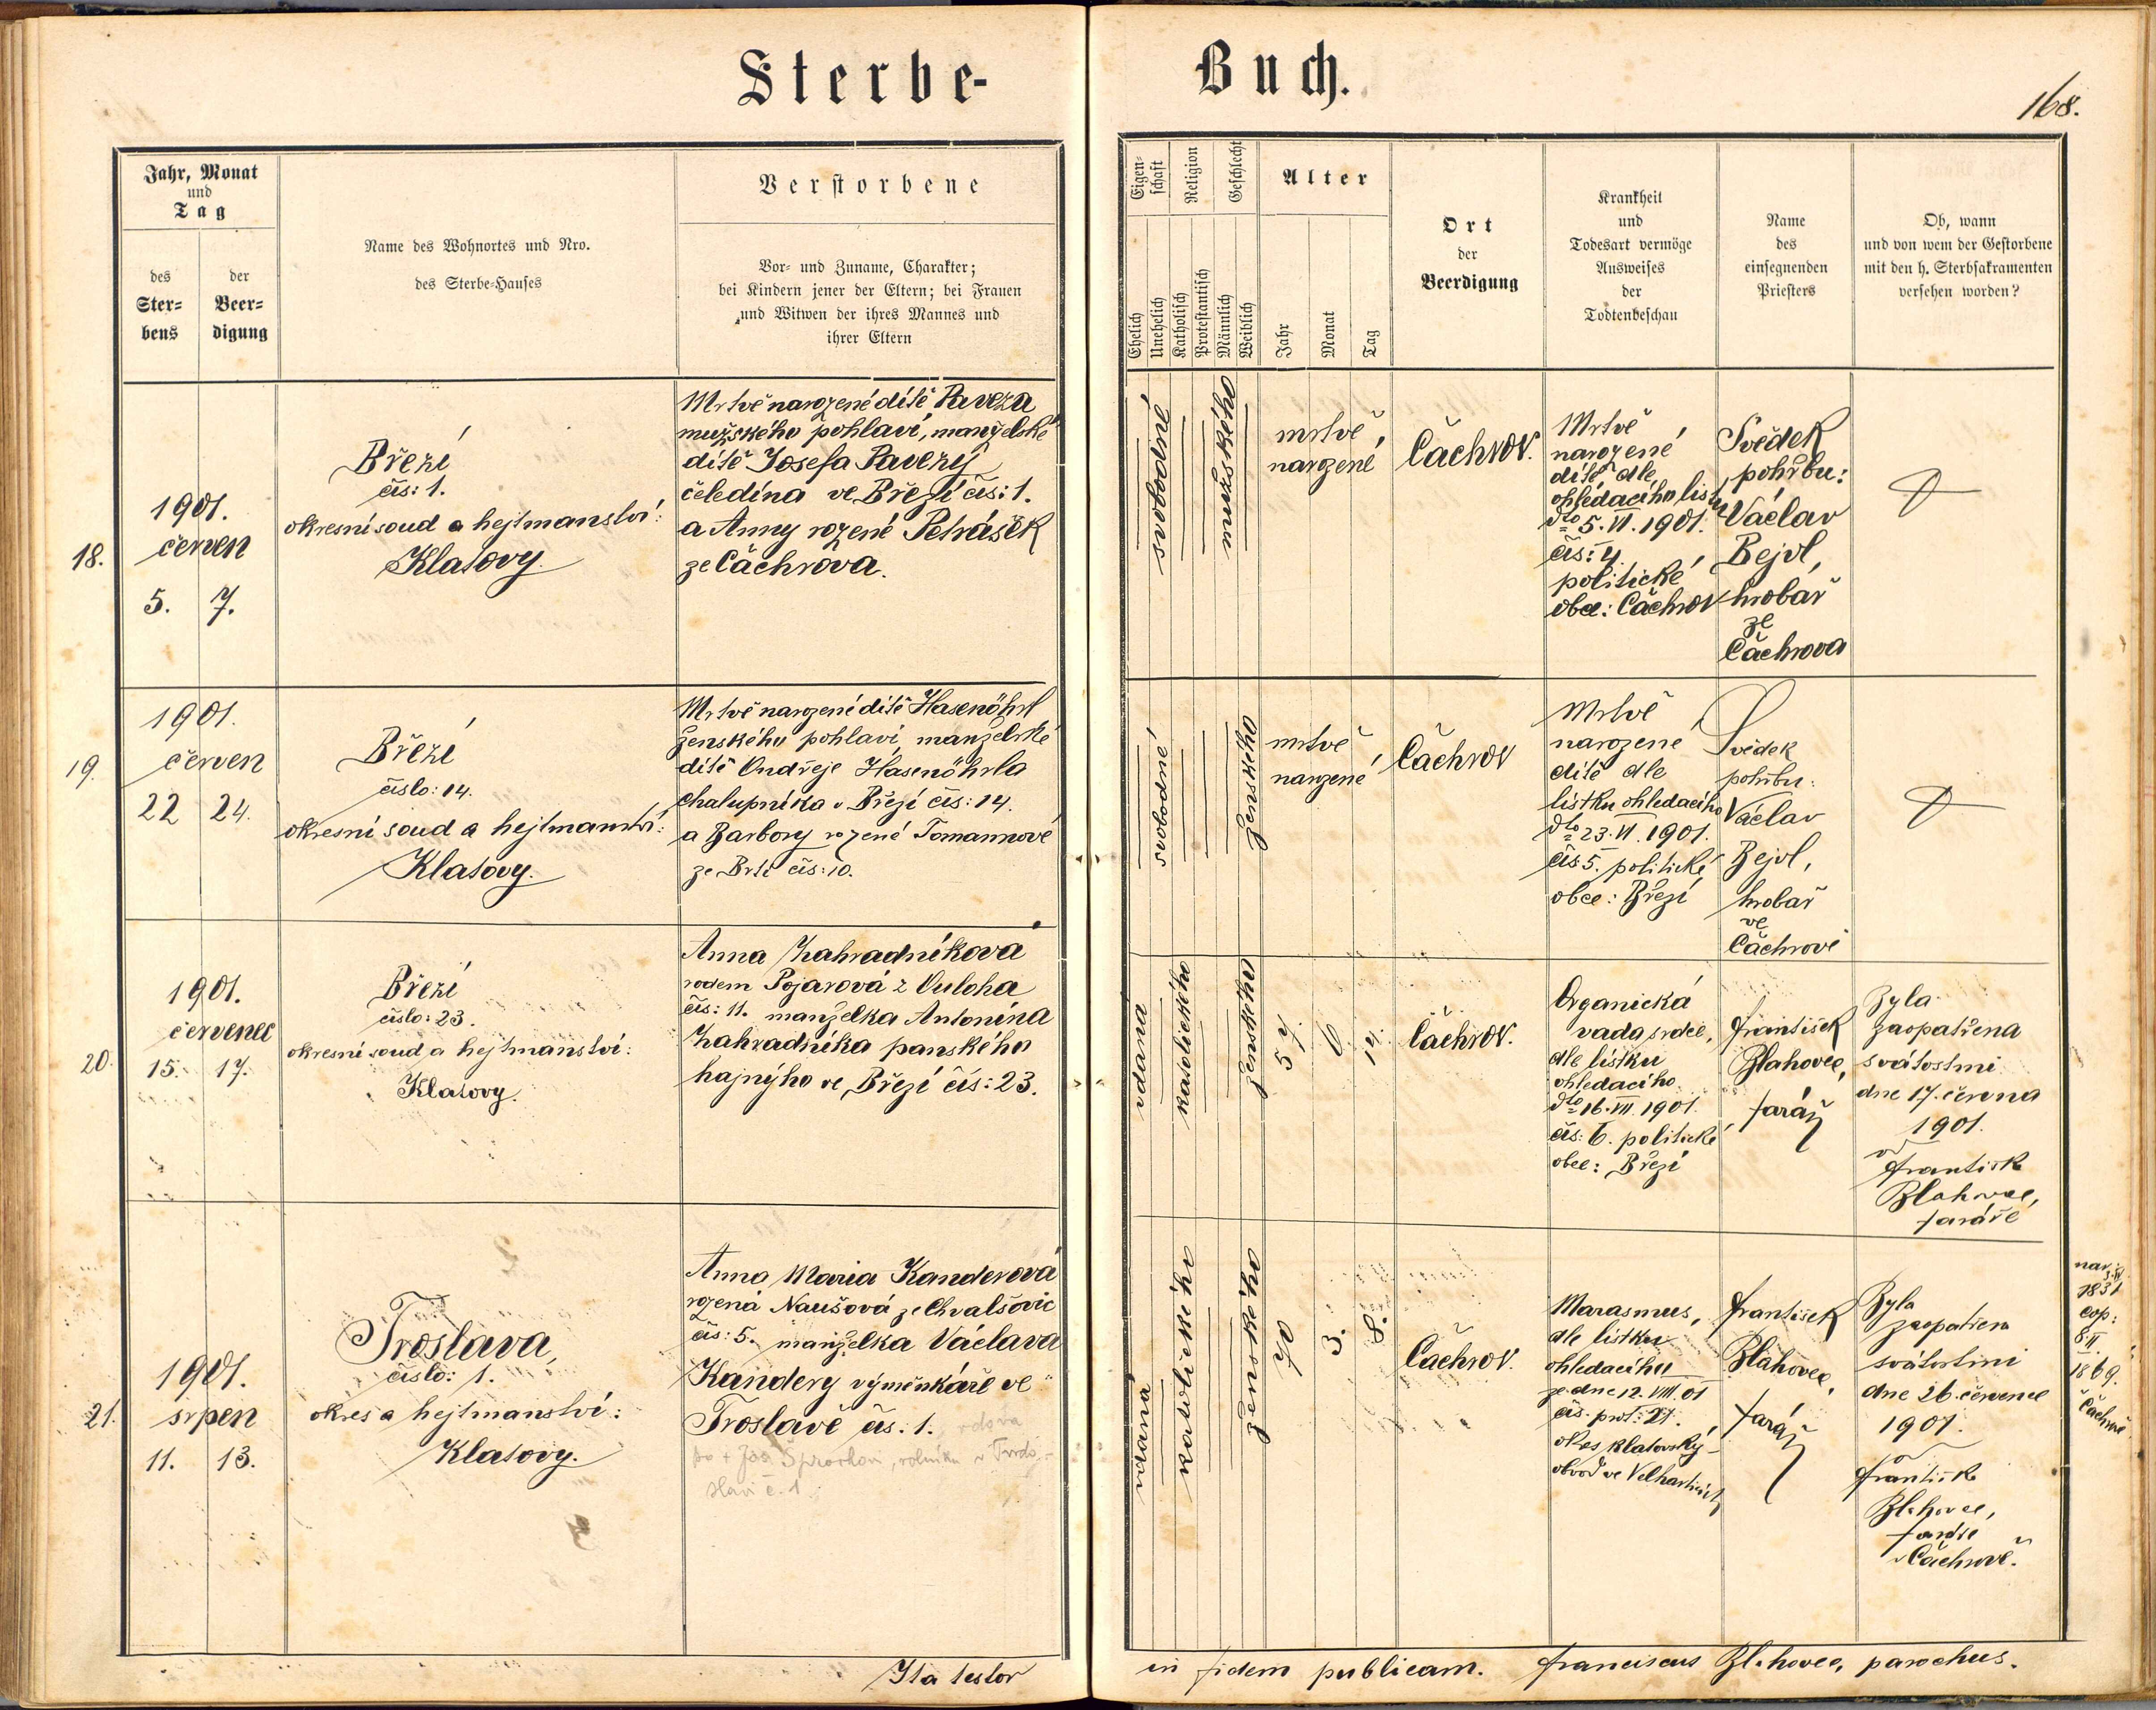 Sterbe-Buch.
168.
Jahr, Monat
und
Tag
des
Ster-
bens
der
Beer-
digung
Name des Wohnortes und Nro.
des Sterbe-Hauses
Verstorbene
Vor- und Zuname, Charakter;
bei Kindern jener der Eltern; bei Frauen
und Witwen der ihres Mannes und
ihrer Eltern
Eigen-
schaft
Ehelich
Unehelich
Religion
Katholisch
Protestantisch
Geschlecht
Männlich
Weiblich
Alter
Jahr
Monat
Tag
Ort
der
Beerdigung
Krankheit
und
Todesart vermöge
Ausweises
der
Todtenbeschau
Name
des
einsegnenden
Priesters
Ob, wann
und von wem der Gestorbene
mit den h. Sterbsakramenten
versehen worden?
18.
1901.
červen
5. 7.
Březí
čís: 1.
okresní soud a hejtmanství:
Klatovy.
Mrtvě narozené dítě Paveza
mužského pohlaví, manželské
dítě Josefa Pavezy
čeledína ve Březí čís: 1.
a Anny rozené Petrášek
ze Čachrova.
svobodné
mužského
mrtvě
narozené
Čachrov.
Mrtvě
narozené
dítě dle
ohledacího listu
dto 5. VI. 1901.
čís: 4.
politické
obce: Čachrov
Svědek
pohřbu:
Václav
Bejvl,
hrobař
ze
Čachrova
19.
1901.
červen
22 24.
Březí
číslo: 14.
okresní soud a hejtmanství:
Klatovy.
Mrtvě narozené dítě Hasenöhrl
ženského pohlaví manželské
dítě Ondřeje Hasenöhrla
chalupníka v Březí čís: 14.
a Barbory rozené Tomannové
ze Brtí čís: 10.
svobodné
ženského
mrtvě
narozené
Čachrov
Mrtvě
narozené
dítě dle
lístku ohledacího
dto 23. VI. 1901.
čís 5. politické
obce: Březí
Svědek
pohřbu:
Václav
Bejvl,
hrobař
ve
Čachrově
20.
1901.
červenec
15. 17.
Březí
číslo: 23.
okresní soud a hejtmanství:
Klatovy.
Anna Zahradníková
rodem Pojarová z
čís: 11. manželka Antonína
Zahradníka panského
hajnýho ve Březí čís: 23.
vdaná
katolického
ženského
57. 0 14.
Čachrov.
Organická
vada srdce,
dle lístku
ohledacího
dto 16. VII. 1901.
čís: 6. politické
obce: Březí
František
Blahovec,
farář
Byla
zaopatřena
svátostmi
dne 17. června
1901.
od
Františka
Blahovce,
faráře
21.
1901.
srpen
11. 13.
Troslava,
číslo: 1.
okres a hejtmanství:
Klatovy.
Anna Maria Kanderová
rozená Naušová ze Chvalšovic
čís: 5. manželka Václava
Kandery výměnkáře ve
Troslavě čís. 1. vdova
po + Jos.
slavi č. 1
vdaná
katolického
ženského
70 3. 8.
Čachrov.
Marasmus,
dle lístku
ohledacího
ze dne 12. VIII. 01
čís. prot: 27.
okres klatovský
obvod ve Velharticích
František
Blahovec,
farář
Byla
zaopatřena
svátostmi
dne 26. července
1901.
od
Františka
Blahovce,
faráře
v Čachrově.
nar:
1831
cop:
8. II.
1869.
Čachrov
Ita testor in fidem publicam. Franciscus Blahovec, parochus.